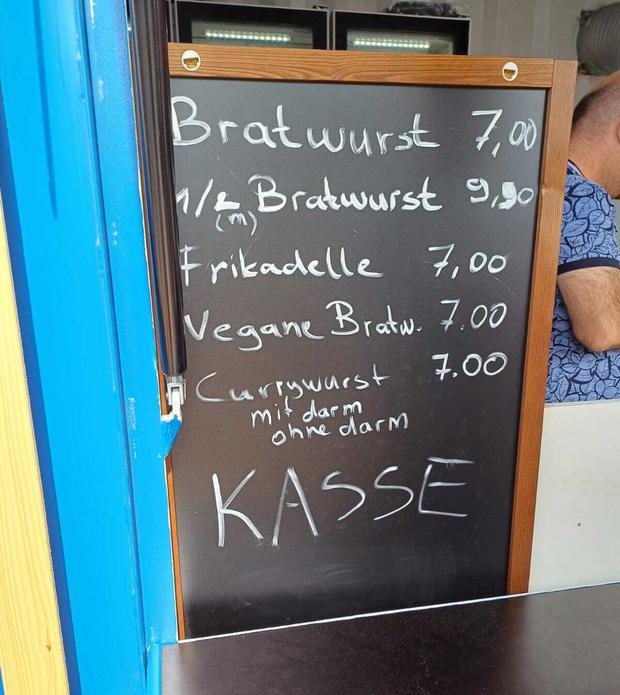 Bratwurst 7,00
1/2 Bratwurst 9,90
(m)
Frikadelle 7,00
Vegane Bratw. 7.00
Currywurst 7.00
mit darm
ohne darm
KASSE